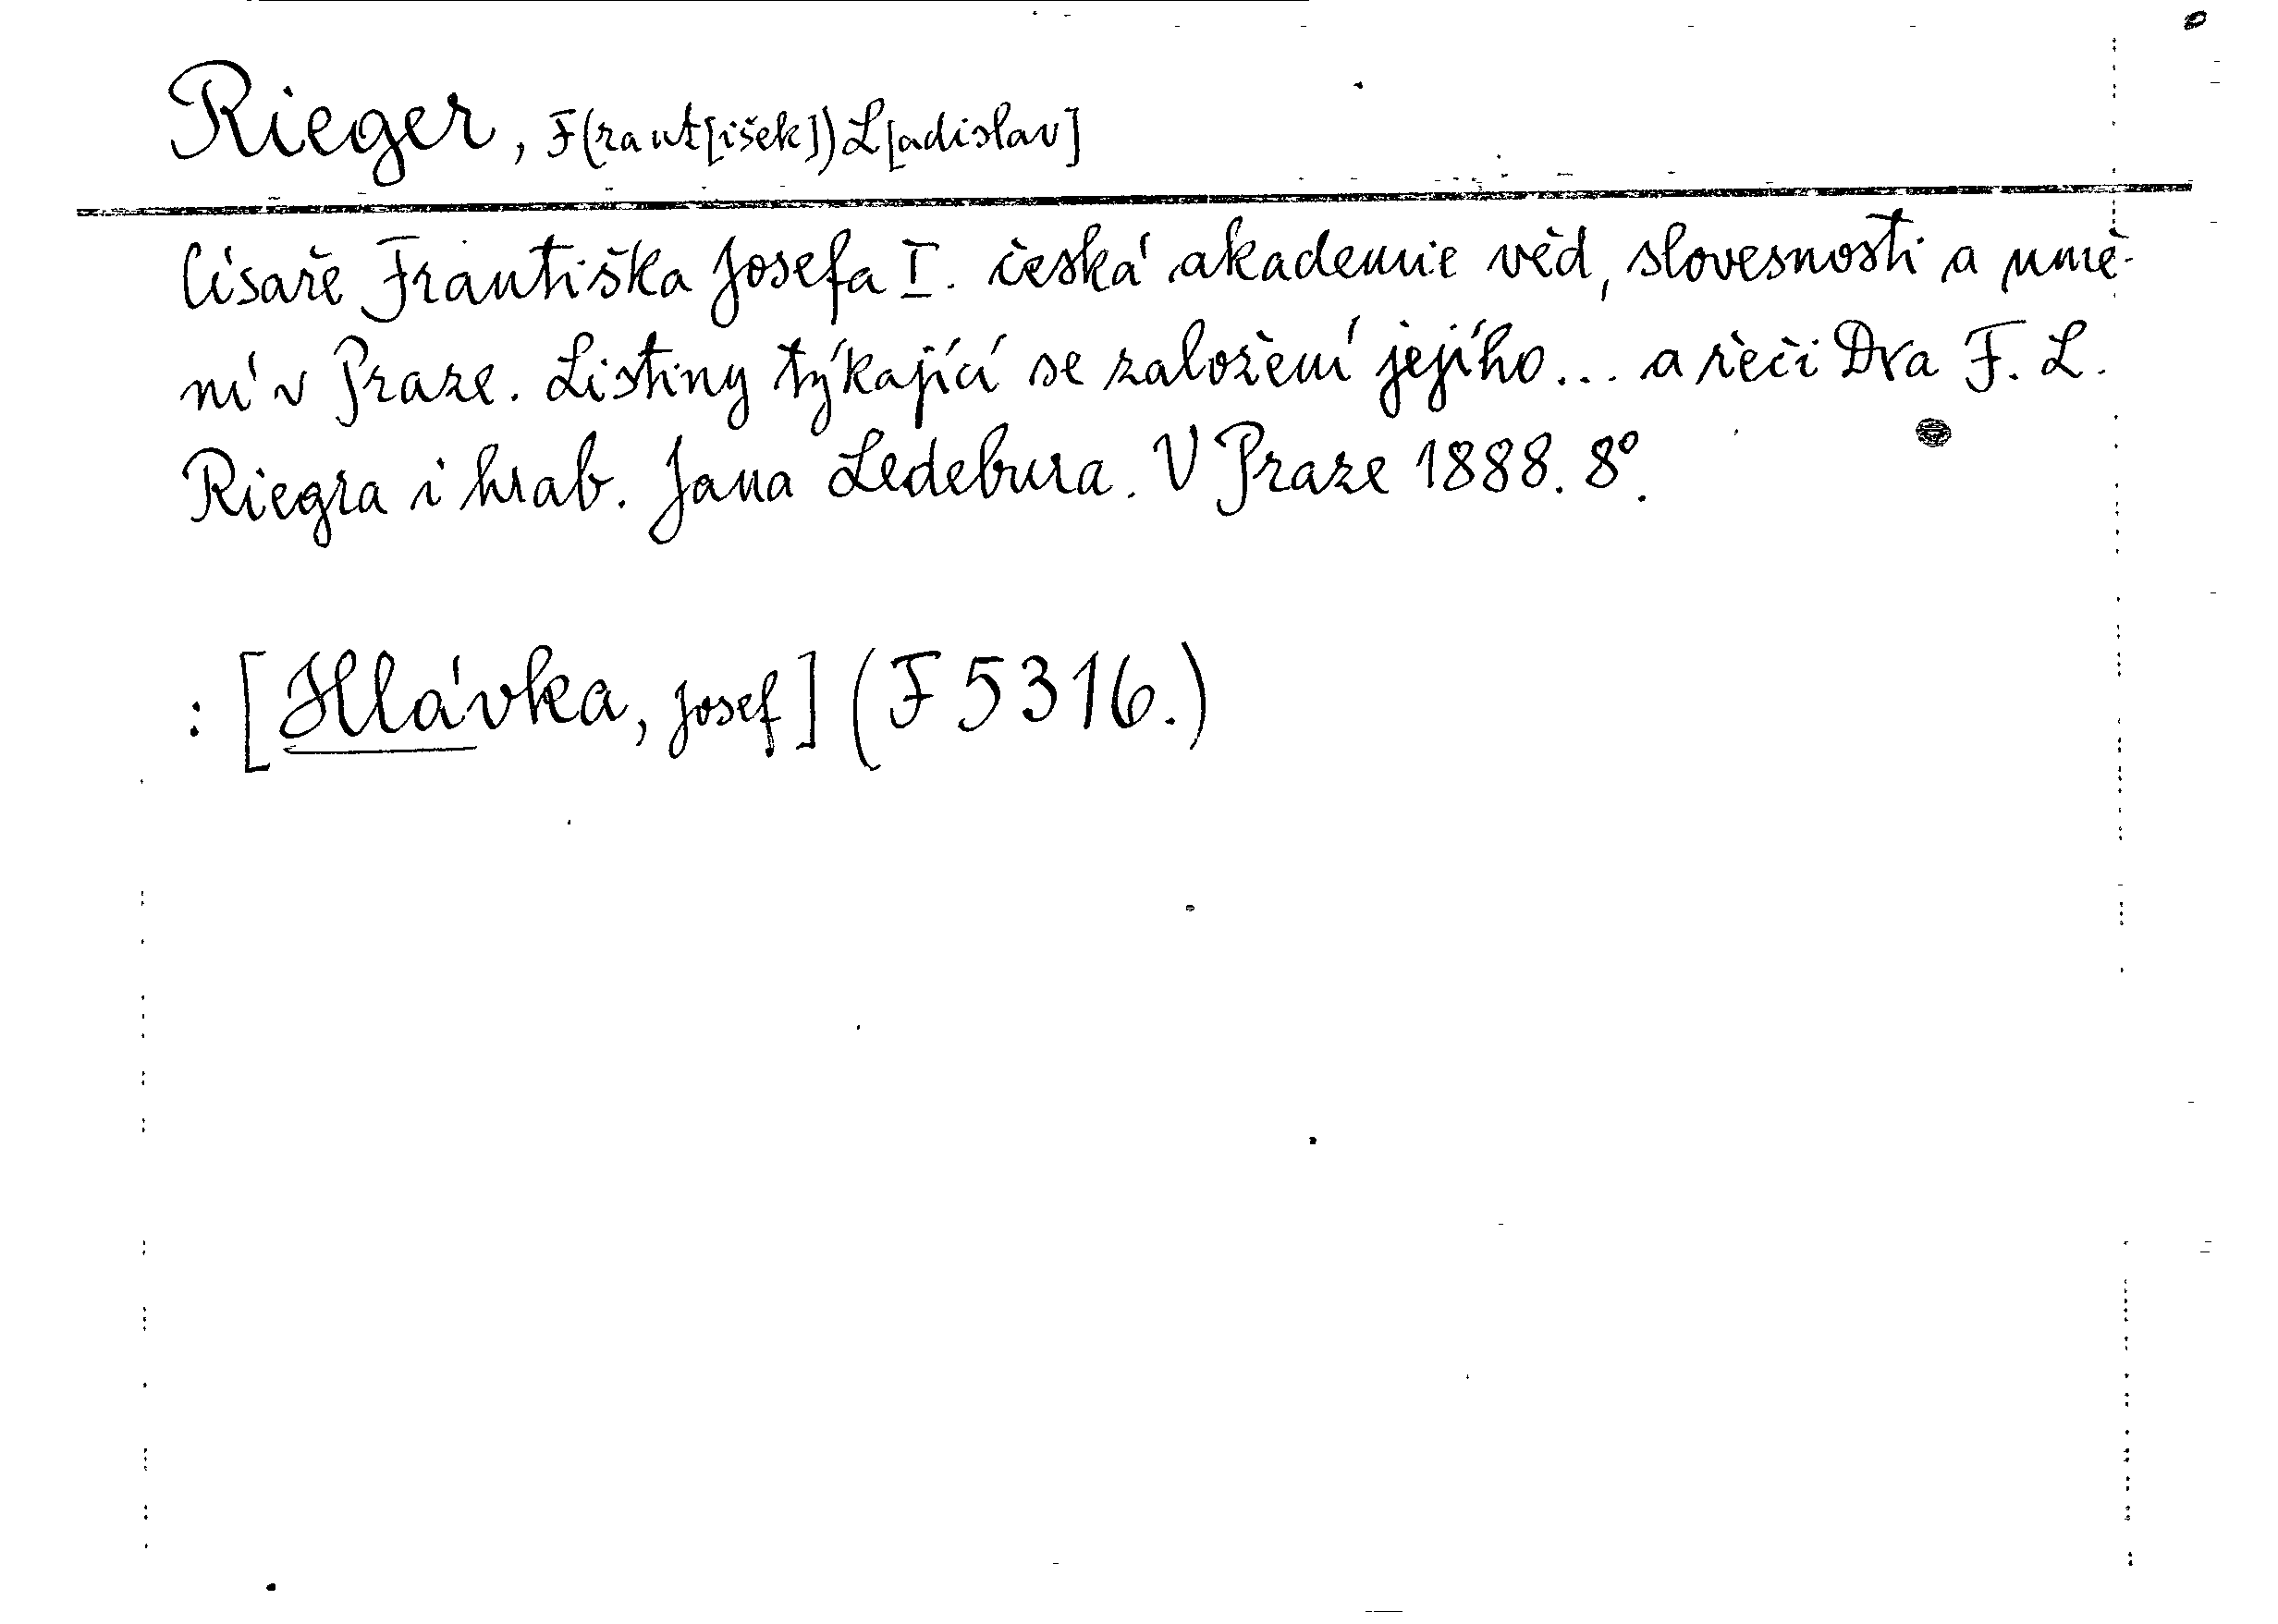 Rieger, F(rant[išek]) L[adislav]
Císaře Františka Josefa I. česká akademie věd, slovesnosti a umě-
ní v Praze. Listiny týkající se založení jejího... a řeči Dra F. L.
Riegra i hrab. Jana Ledebura. V Praze 1888. 8°.
: [Hlávka, Josef] (F 5316.)